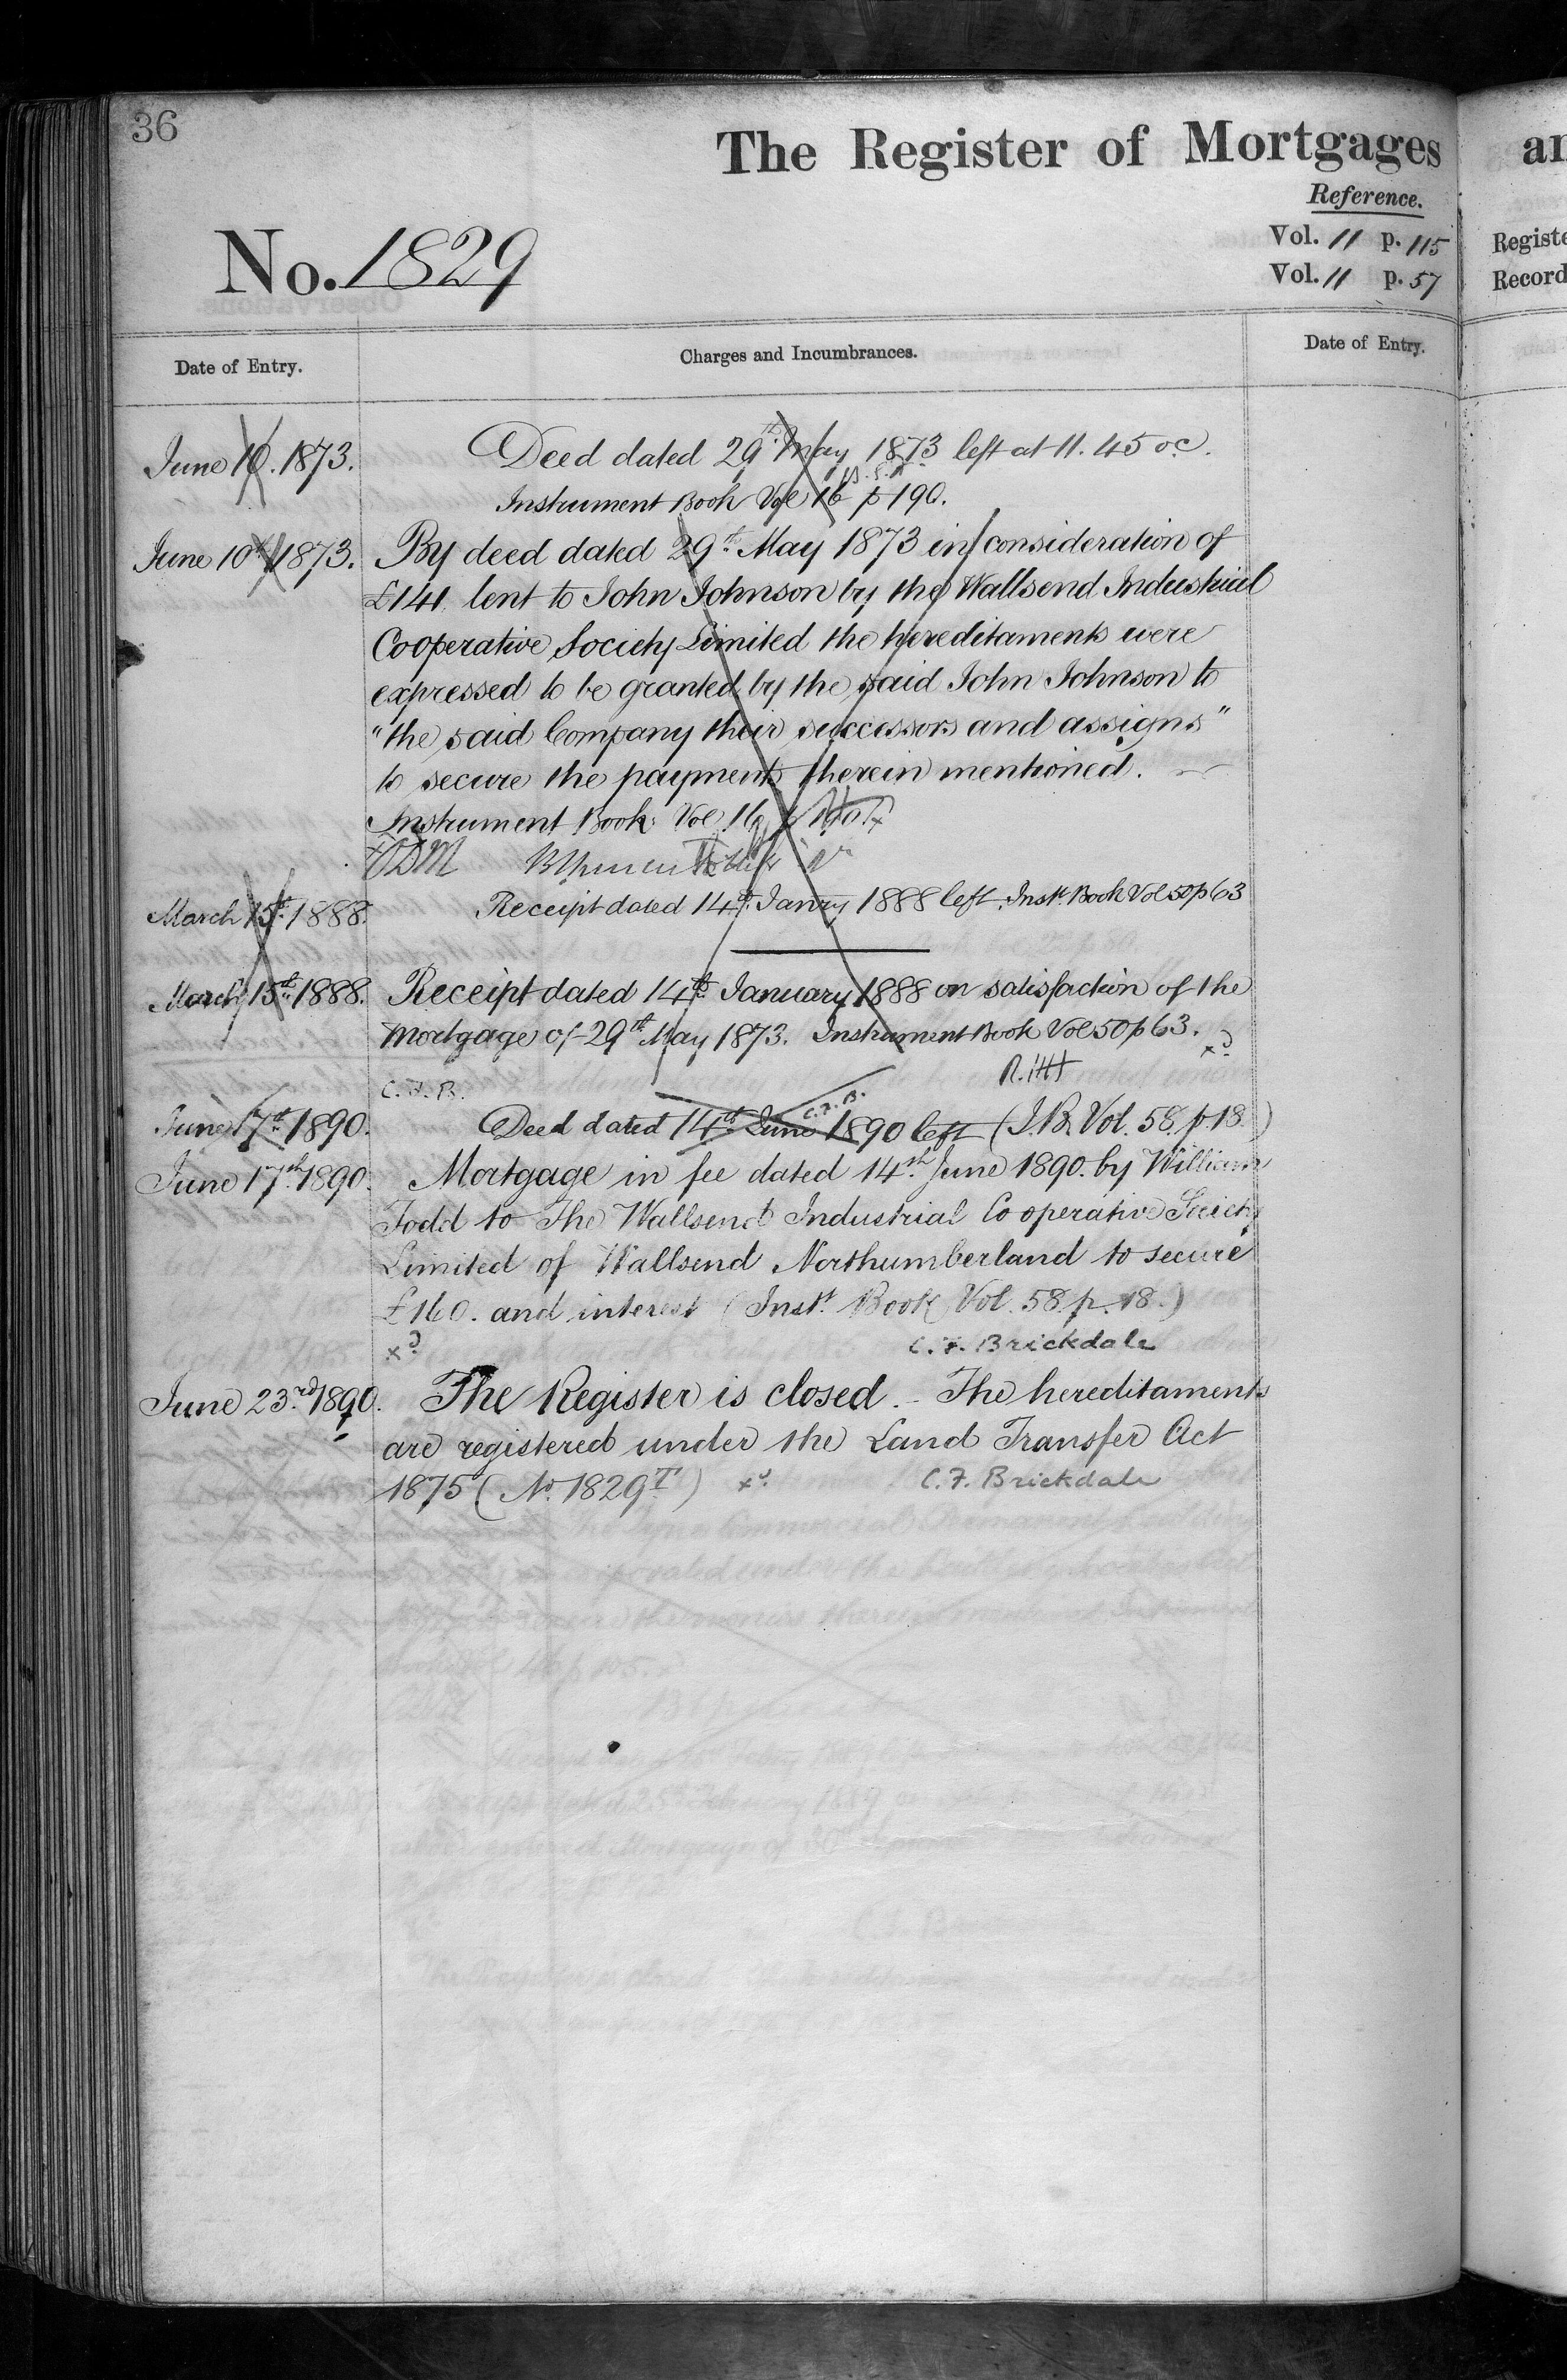 36
The Register of Mortgages
an
Reference.
No. 1829
Vol. 11 p. 115
Registe
Vol. 11 p. 57
Record
Date of Entry.
Charges and Incumbrances.
Date of Entry.
June 10. 1873. Deed dated 29th May 1873 left at 11. 45 oc.
Instrument Book Vol 16 p 190.
June 10th 1873. By deed dated 29th May 1873 in consideration of
£141. lent to John Johnson by the Wallsend Industrial
Cooperative Society Limited the hereditaments were
expressed to be granted by the said John Johnson to
"the said Company their successors and assigns"
to secure the payments therein mentioned.
Instrument Book Vol 16 p 190.
March 15th 1888. Receipt dated 14th Janry 1888 left. Inst. Book Vol 50 p 63
March 15th 1888. Receipt dated 14th January 1888 on satisfaction of the
Mortgage of 29th May 1873. Instrument Book Vol 50 p 63.
C.F.B.
C.F.B.
June 17th 1890. Deed dated 14th June 1890 left (I.B. Vol. 58. p. 18.)
June 17th 1890. Mortgage in fee dated 14th June 1890. by William
Todd to The Wallsend Industrial Co operative Society
Limited of Wallsend Northumberland to secure
£160. and interest (Inst. Book Vol. 58. p. 18.)
C.F. Brickdale
June 23rd 1890. The Register is closed. - The hereditaments
are registered under the Land Transfer Act
1875 (No. 1829T) C.F. Brickdale